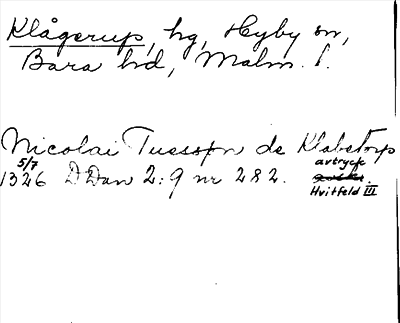 Klågerup, hg, Hyby sn,
Bara hd, Malm. l.
Nicolai Tuessøn de Klabetorp
5/7 1326 DDan 2:9 nr 282. avtryck
Hvitfeld III